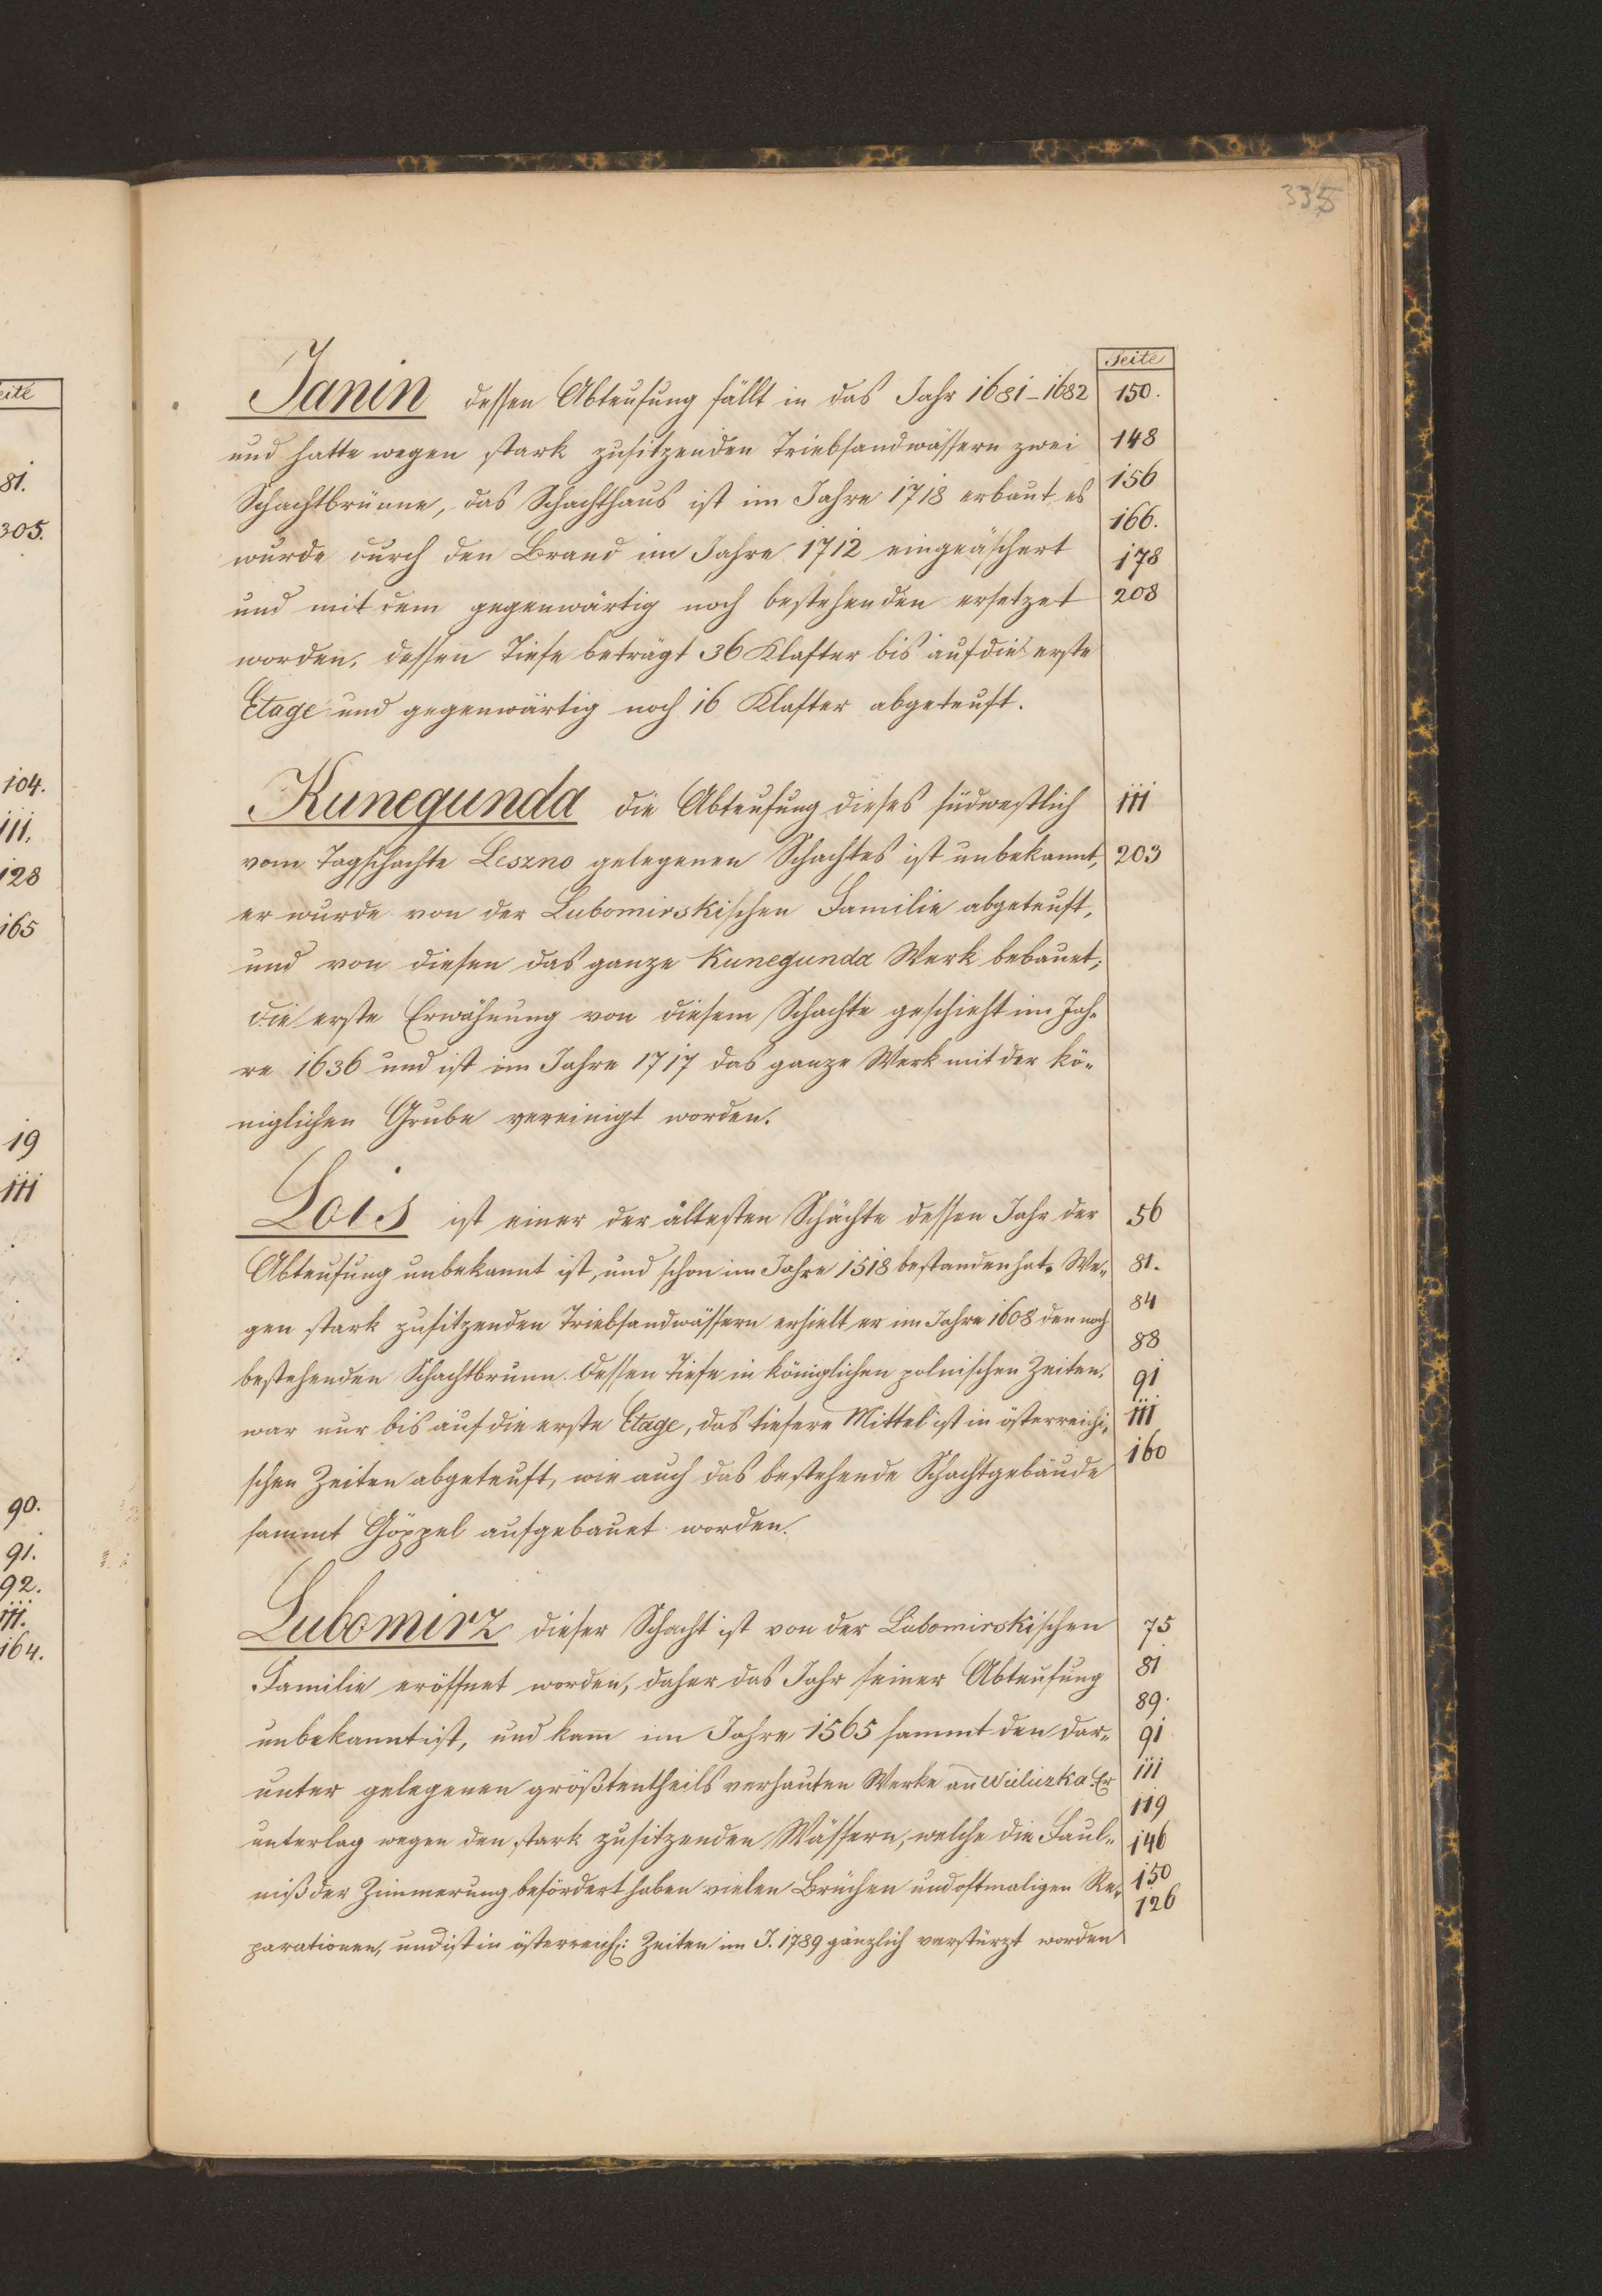 eite
81.
305.
104.
111.
128
165
19
111
90.
91.
92.
111.
164.
335
Seite
Janin dessen Abteufung fällt in das Jahr 1681–1682 150.
und hatte wegen stark zusitzenden Triebsandwässern zwei 148
Schachtbrünne, das Schachthaus ist im Jahre 1718 erbaut es 156
166.
wurde durch den Brand im Jahre 1712 eingeäschert 178
und mit dem gegenwärtig noch bestehenden ersetzet 208
worden, dessen Tiefe beträgt 36 Klafter bis auf die erste
Etage und gegenwärtig noch 16 Klafter abgeteuft.
Kunegunda die Abteufung dieses südwestlich 111
vom Tagschachte Leszno gelegenen Schachtes ist unbekannt, 203
er wurde von der Lubomirskischen Familie abgeteuft,
und von diesen das ganze Kunegunda Werk bebauet;
die erste Erwähnung von diesem Schachte geschieht im Jah-
re 1636 und ist im Jahre 1717 das ganze Werk mit der kö-
niglichen Grube vereinigt worden.
Lois ist einer der ältesten Schächte dessen Jahr der 56
Abteufung unbekannt ist, und schon im Jahre 1518 bestanden hat. We- 81.
gen stark zusitzenden Triebsandwässern erhielt er im Jahre 1608 den noch 84
88
bestehenden Schachtbrunn. Dessen Tiefe in königlichen polnischen Zeiten, 91
war nur bis auf die erste Etage, das tiefere Mittel ist in österreichi- 111
schen Zeiten abgeteuft, wie auch das bestehende Schachtgebäude 160
sammt Göppel aufgebauet worden.
Lubomirz dieser Schacht ist von der Lubomirskischen 75
Familie eröffnet worden, daher das Jahr seiner Abteufung 81
89.
unbekannt ist, und kam im Jahre 1565 sammt den dar- 91
unter gelegenen größtentheils verhauten Werke an Wieliczka. Er 111
119
unterlag wegen den stark zusitzenden Wässern, welche die Faul- 146
niß der Zimmerung befördert haben vielen Brüchen und oftmaligen Re- 150
126
parationen, und ist in österreich: Zeiten im J. 1789 gänzlich verstürzt worden